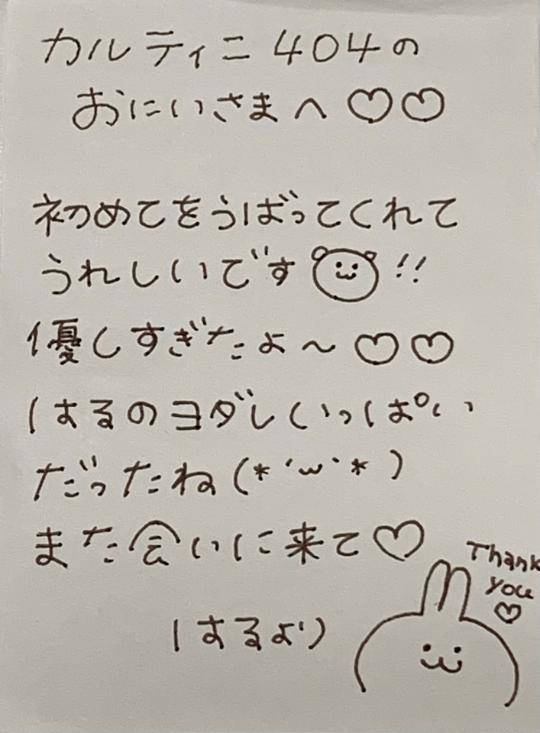 カルティニ404の
おにいさまへ♡♡
初めてをうばってくれて
うれしいです!!
優しすぎたよ〜♡♡
はるのヨダレいっぱい
だったね(*´ω`*)
また会いに来て♡
Thank
you
♡
はるより